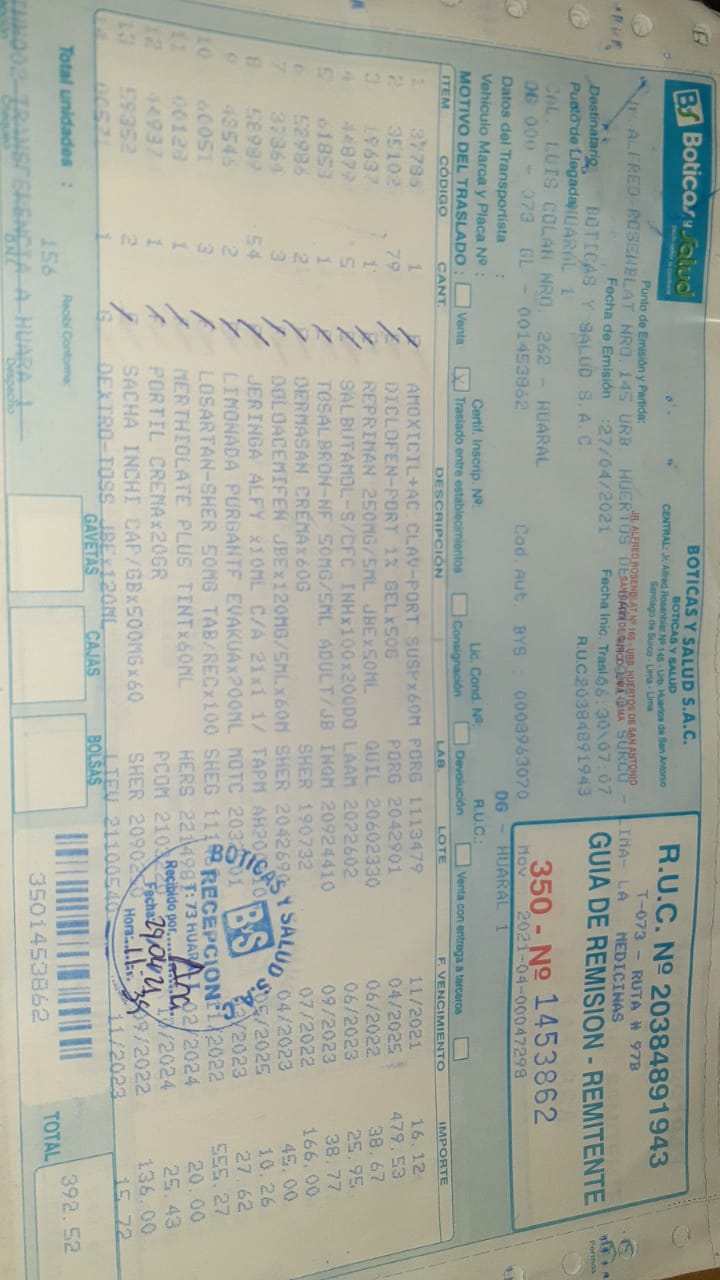 BS Boticas y Salud
BOTICAS Y SALUD S.A.C.
BOTICAS Y SALUD
CENTRAL: Jr. Alfred Rosenblat Nº 145 - Urb. Huertos de San Antonio
Santiago de Surco - Lima - Lima
JR. ALFRED ROSENBLAT Nº 165 - URB. HUERTOS DE SAN ANTONIO
R.U.C. Nº 20384891943
T-073 - RUTA # 97B
MEDICINAS
GUIA DE REMISION - REMITENTE
350 - Nº 1453862
Mov 2021-04-00047298
Punto de Emisión y Partida:
Jr ALFRED ROSENBLAT NRO. 145 URB HUERTOS DE SURCO -
Fecha de Emisión :27/04/2021 Fecha Inic. Trasl 06:30\07:07
Destinatario BOTICAS Y SALUD S.A.C. R.U.C 20384891943
Punto de Llegada HUARAL 1
CAL LUIS COLAN NRO. 262 - HUARAL
06 000 - 073 GL - 001453862 Cod.Aut. BYS : 0003963070 06 - HUARAL 1
Datos del Transportista :
Vehículo Marca y Placa Nº : Certif. Inscrip. Nº: Lic. Cond. Nº R.U.C.:
MOTIVO DEL TRASLADO : Venta Traslado entre establecimientos Consignación Devolución Venta con entrega a terceros
ITEM CÓDIGO CANT. DESCRIPCIÓN LAB. LOTE F. VENCIMIENTO IMPORTE
1 37786 1 AMOXICIL+AC CLAV-PORT SUSPx60M PORG 1113479 11/2021 16.12
2 35102 79 DICLOFEN-PORT 1% GELx50G PORG 2042901 04/2025 479.53
3 19637 1 REPRIMAN 250MG/5ML JBEx50ML QUIL 20602330 06/2022 38.67
4 46879 5 SALBUTAMOL-S/CFC INHx100x200DO LAAM 2022602 06/2023 25.95
5 61853 1 TOSALBRON-NF 50MG/5ML ADULT/JB INQM 20924410 09/2023 38.77
6 52986 2 DERMASAN CREMAx60G SHER 190732 07/2022 166.00
7 37364 3 DOLOACEMIFEN JBEx120MG/5MLx60M SHER 2042690 04/2023 45.00
8 58989 54 JERINGA ALFY x10ML C/A 21x1 1/ TAPM 05/2025 10.26
9 43546 2 LIMONADA PURGANTE EVAKUAx200ML MOTC 27.62
10 60051 3 LOSARTAN-SHER 50MG TAB/RECx100 SHEG 555.27
11 00129 1 MERTHIOLATE PLUS TINTx60ML HERS 02/2024 20.00
12 44937 1 PORTIL CREMAx20GR PCQM 25.43
13 59352 2 SACHA INCHI CAP/GBx500MGx60 SHER 136.00
14 00571 1 DEXTRO-TOSS JBEx120ML 11/2023 15.72
BOTICAS Y SALUD
BS
T: 73 HUARAL
RECEPCION
Recibido por
Fecha:
Hora:
Total unidades : 156
Recibí Conforme:
GAVETAS
CAJAS
BOLSAS
3501453862
TOTAL 392.52
TRANSFERENCIA A HUARA 1
Despacho